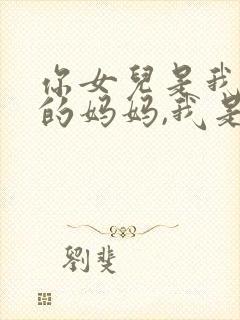 你女兒是我
的妈妈,我是
劉斐